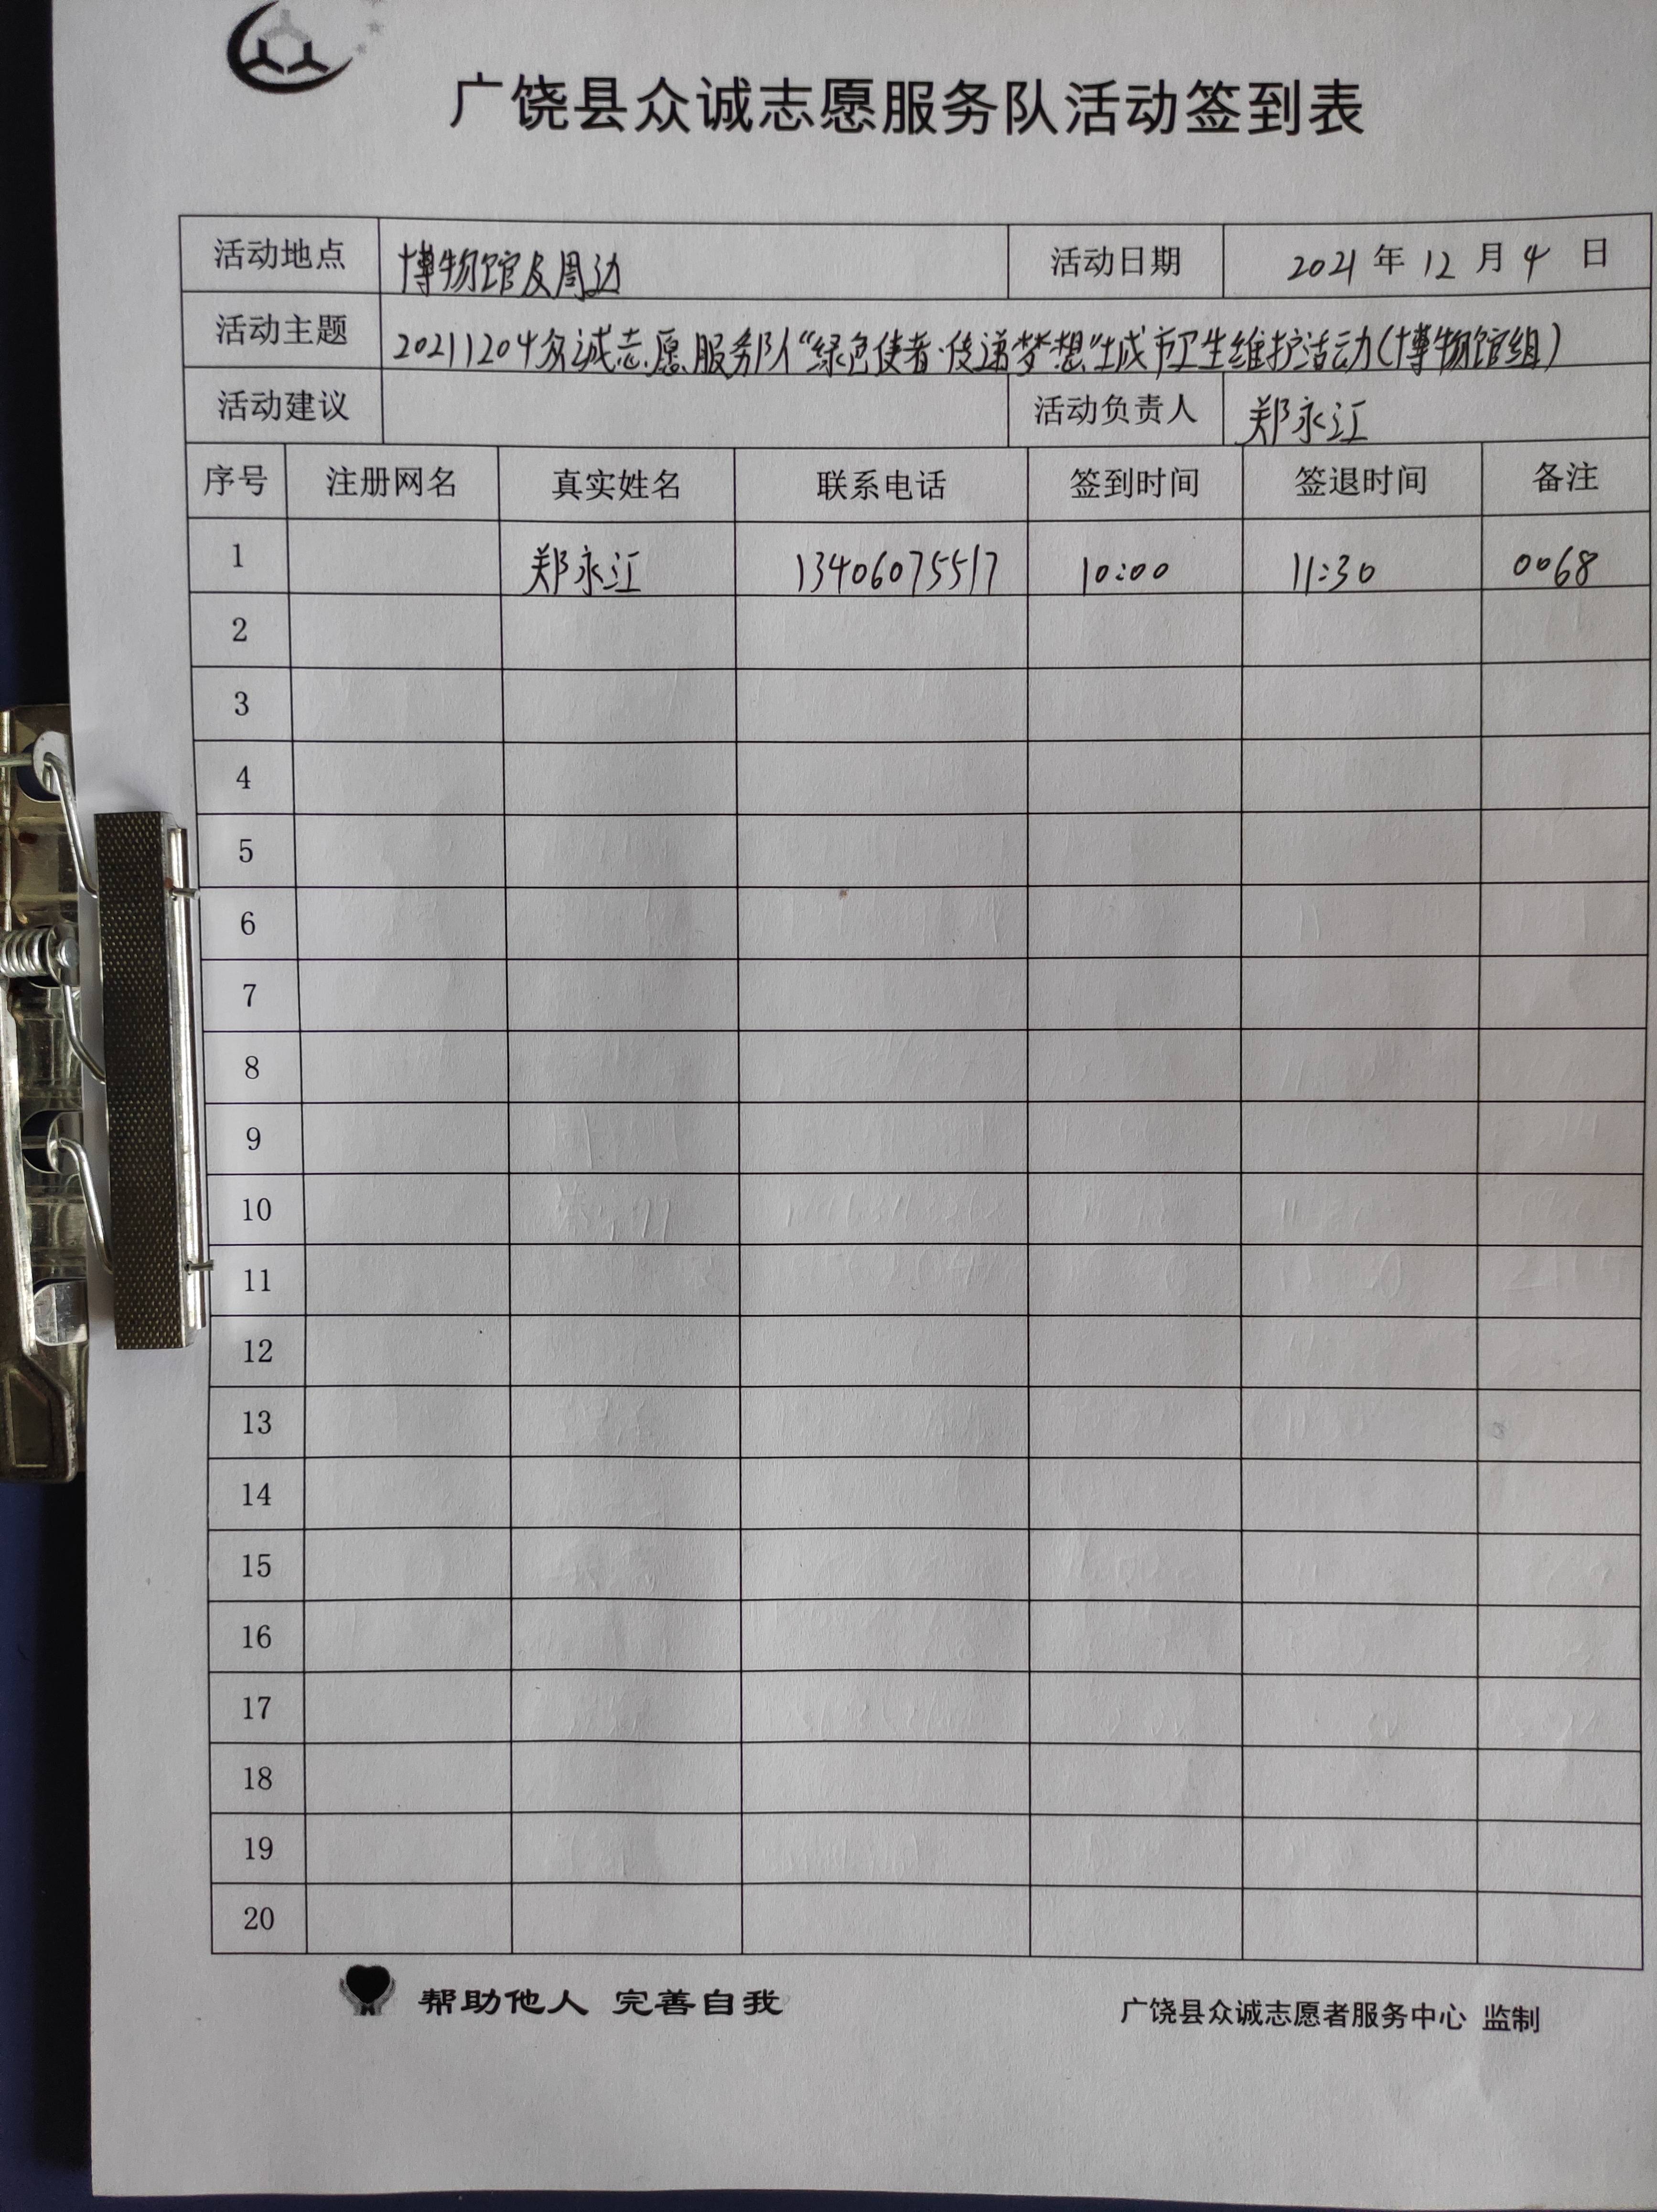 广饶县众诚志愿服务队活动签到表
活动地点 博物馆及周边 活动日期 2021年12月4日
活动主题 20211204众诚志愿服务队“绿色使者·传递梦想”城市卫生维护活动(博物馆组)
活动建议 活动负责人 郑永江
序号 注册网名 真实姓名 联系电话 签到时间 签退时间 备注
1 郑永江 13406075517 10:00 11:30 0068
2
3
4
5
6
7
8
9
10
11
12
13
14
15
16
17
18
19
20
帮助他人 完善自我 广饶县众诚志愿者服务中心 监制